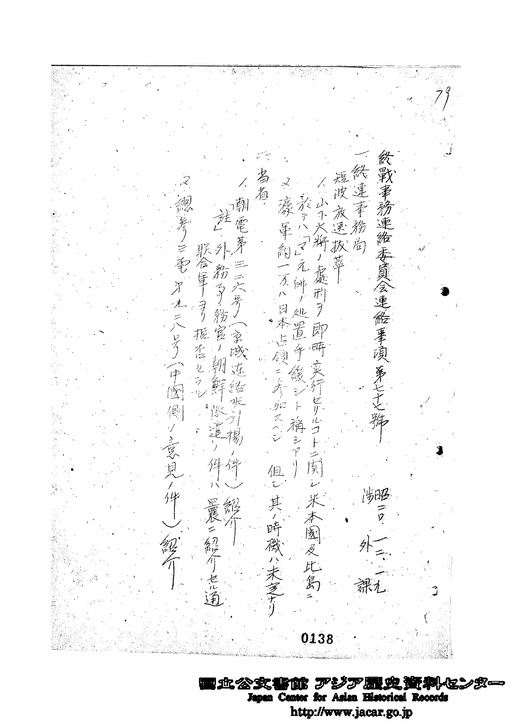 79
終戰事務連絡委員会連絡事項第七十七號
昭二〇、一二、一九
渉外課
一、終連事務局
短波放送抜萃
1、山下大将ノ處刑ヲ即時実行セザルコトニ関シ米本國及比島ニ
於テハ「マ」元帥ノ処置手緩シト稱シアリ
2、濠軍約一万ハ日本占領ニ参加スベシ 但シ其ノ時機ハ未定ナリ
二、当省
1、朝電第三二六号(京城連絡班引揚ノ件)紹介
註」外務事務官ノ朝鮮派遣ノ件ハ曩ニ紹介セル通
米軍ヨリ拒否セラル
2、總参三電第九二八号(中國側ノ意見ノ件)紹介
0138
国立公文書館 アジア歴史資料センター
Japan Center for Asian Historical Records
http://www.jacar.go.jp